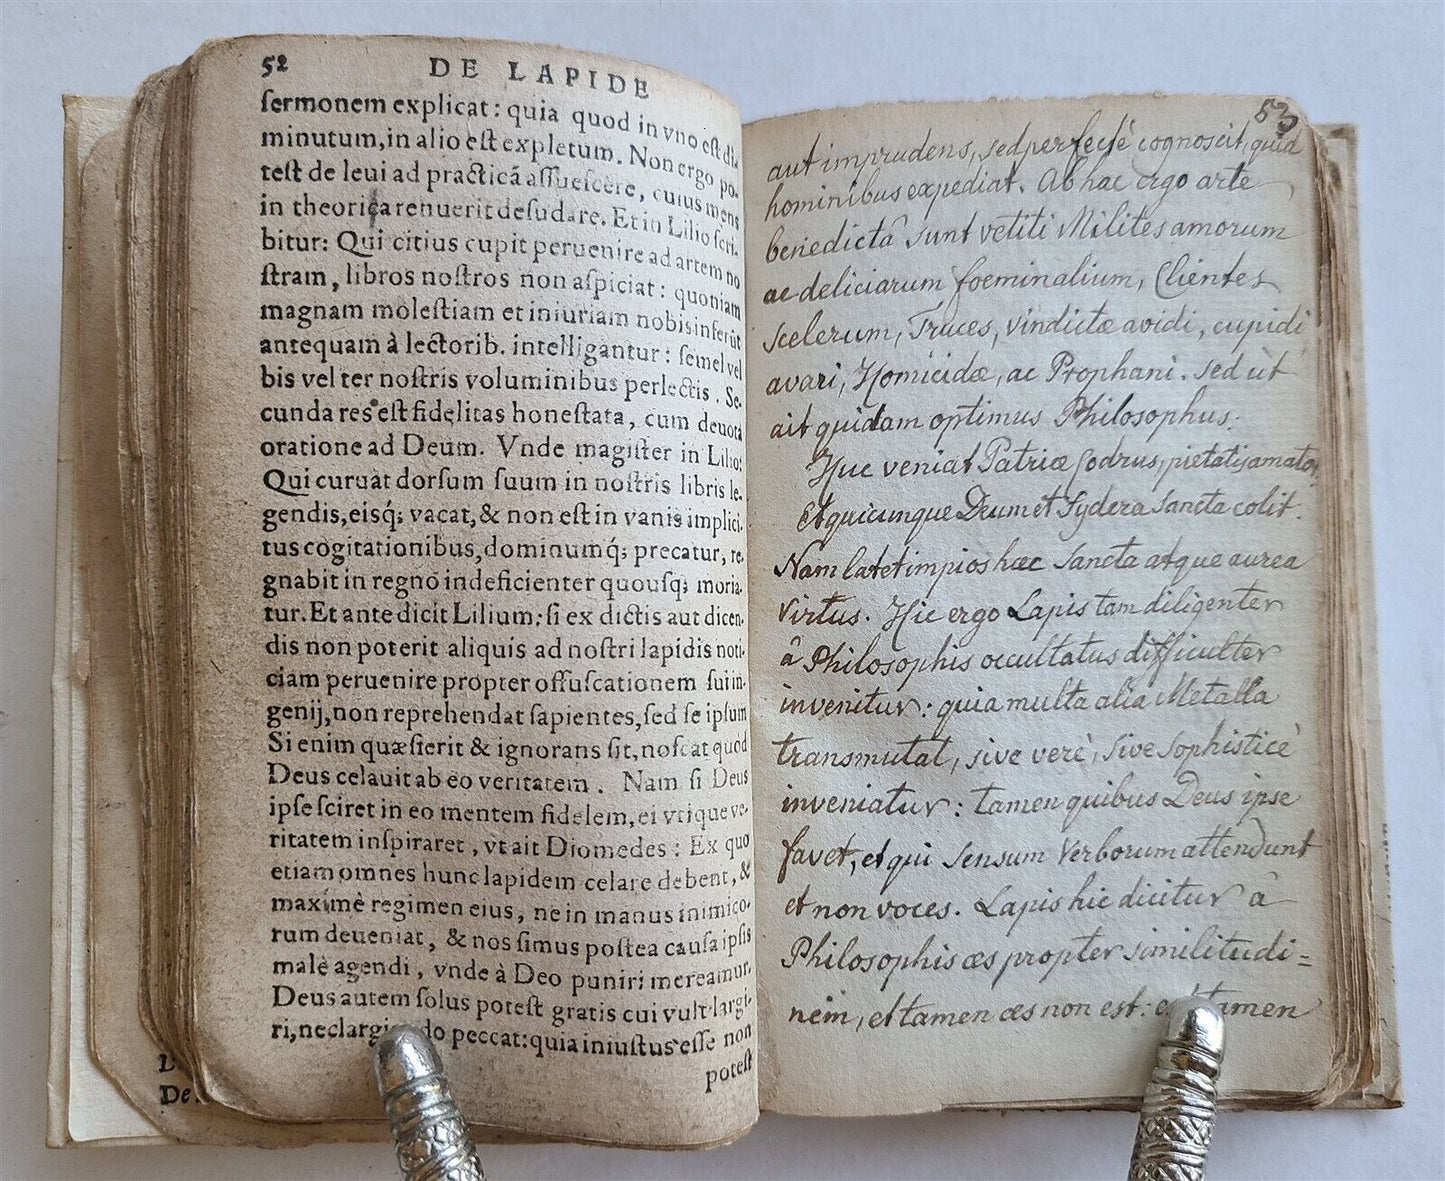 52 DE LAPIDE
ſermonem explicat: quia quod in vno eſt di-
minutum, in alio eſt expletum. Non ergo po-
teſt de leui ad practicã aſſueſcere, cuius mens
in theorica renuerit deſudare. Et in Lilio ſcri-
bitur: Qui citius cupit peruenire ad artem no
ſtram, libros noſtros non aſpiciat: quoniam
magnam moleſtiam et iniuriam nobis inferũt
antequam à lectorib. intelligantur: ſemel vel
bis vel ter noſtris voluminibus perlectis. Se-
cunda res eſt fidelitas honeſtata, cum deuota
oratione ad Deum. Vnde magiſter in Lilio:
Qui curuat dorſum ſuum in noſtris libris le-
gendis, eisq; vacat, & non eſt in vanis implici-
tus cogitationibus, dominumq́; precatur, re-
gnabit in regno indeficienter quouſq; moria-
tur. Et ante dicit Lilium: ſi ex dictis aut dicen-
dis non poterit aliquis ad noſtri lapidis noti-
ciam peruenire propter offuſcationem ſui in-
genij, non reprehendat ſapientes, ſed ſe ipſum
Si enim quæſierit & ignorans ſit, noſcat quod
Deus celauit ab eo veritatem. Nam ſi Deus
ipſe ſciret in eo mentem fidelem, ei vtique ve-
ritatem inſpiraret, vt ait Diomedes: Ex quo
etiam omnes hunc lapidem celare debent, &
maximè regimen eius, ne in manus inimico-
rum deueniat, & nos ſimus poſtea cauſa ipſis
malè agendi, vnde à Deo puniri mereamur.
Deus autem ſolus poteſt gratis cui vult largi-
ri, nec largi do peccat: quia iniuſtus eſſe non
poteſt
L
De.
53
aut imprudens, sed perfectè cognoscit, quid
hominibus expediat. Ab hac ergo arte
benedictâ sunt vetiti Milites amorum
ac deliciarum foeminalium, Clientes
scelerum, Truces, vindictæ avidi, cupidi
avari, Homicidæ, ac Prophani. sed ùt
ait quidam optimus Philosophus:
Huc veniat Patriæ Codrus, pietatis amator
Et quicunque Deum et Sydera Sancta colit.
Nam latet impios hæc Sancta atque aurea
virtus. Hic ergo Lapis tam diligenter
â Philosophis occultatus difficulter
invenitur: quia multa alia Metalla
transmutat, sive verè, sive sophisticè
inveniatur: tamen quibus Deus ipse
favet, et qui sensum Verborum attendunt
et non voces. Lapis hic dicitur â
Philosophis æs propter similitudi=
nem, et tamen æs non est: et tamen